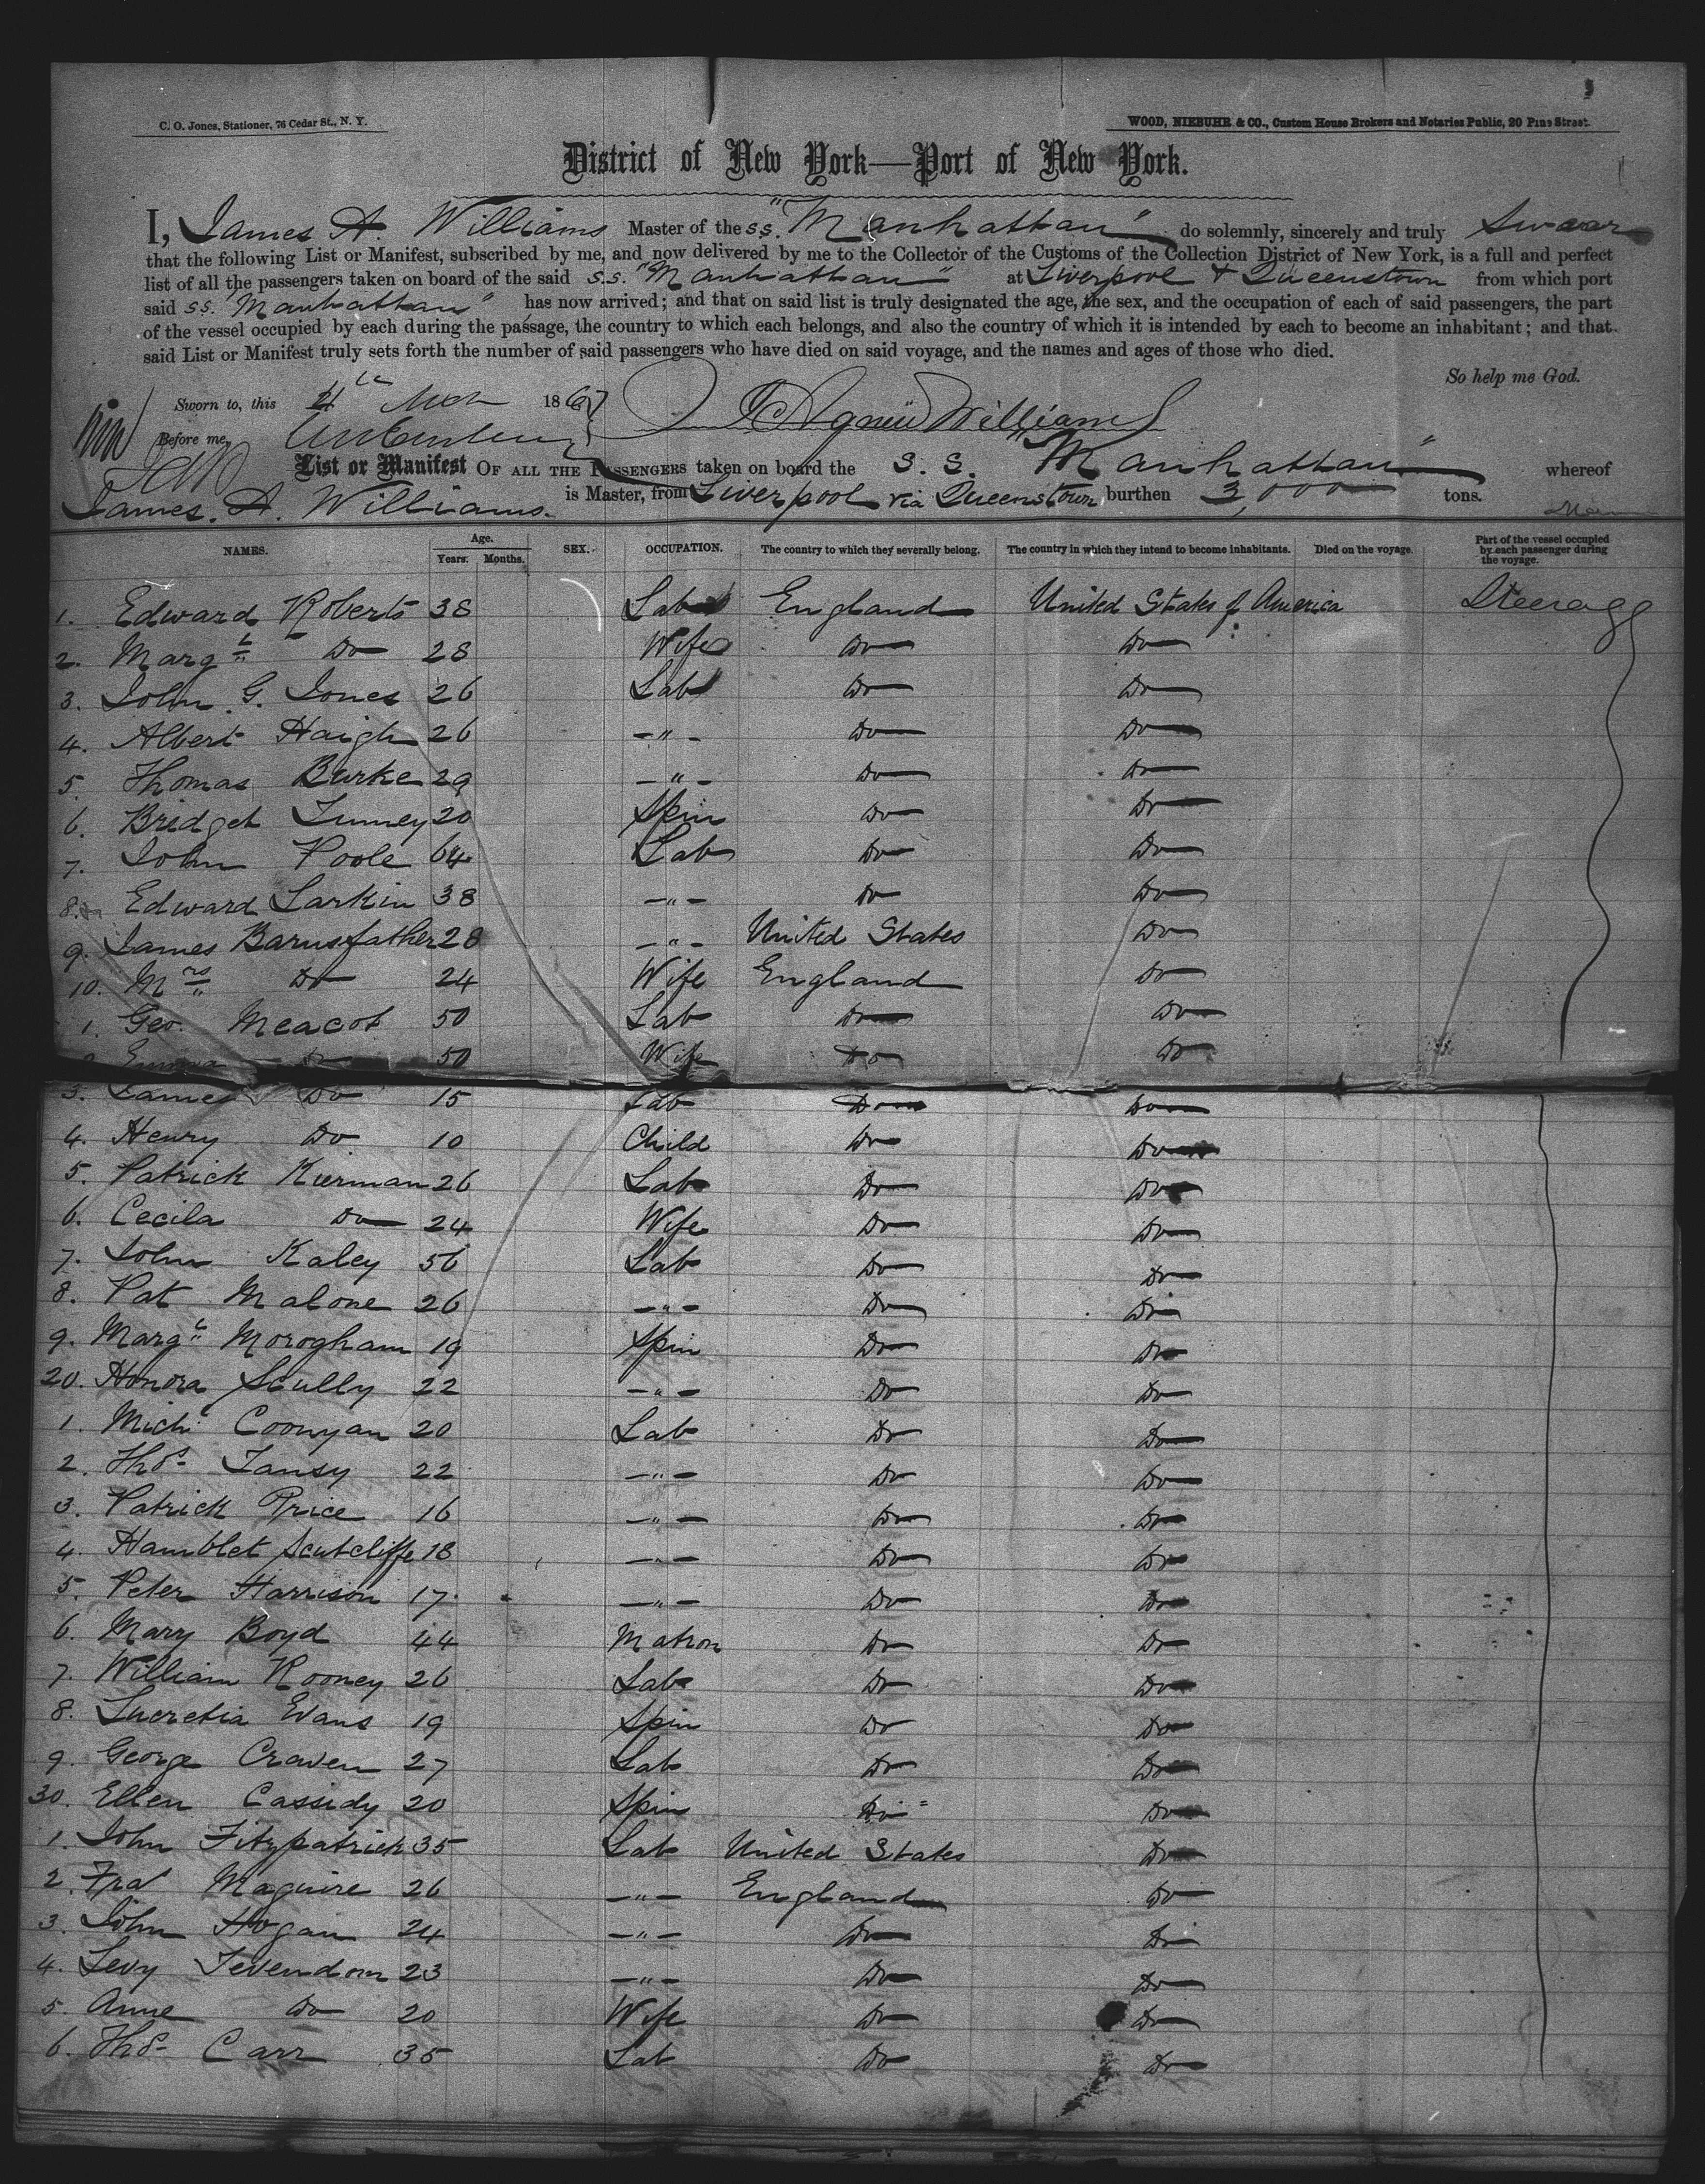 C. O. Jones, Stationer, 76 Cedar St., N. Y.
WOOD, NIEBUHR & CO., Custom House Brokers and Notaries Public, 20 Pine Street.
District of New York—Port of New York.
I, James A. Williams Master of the s.s. "Manhattan" do solemnly, sincerely and truly Swear
that the following List or Manifest, subscribed by me, and now delivered by me to the Collector of the Customs of the Collection District of New York, is a full and perfect
list of all the passengers taken on board of the said s.s. "Manhattan" at Liverpool & Queenstown from which port
said ss. "Manhattan" has now arrived; and that on said list is truly designated the age, the sex, and the occupation of each of said passengers, the part
of the vessel occupied by each during the passage, the country to which each belongs, and also the country of which it is intended by each to become an inhabitant; and that
said List or Manifest truly sets forth the number of said passengers who have died on said voyage, and the names and ages of those who died.
So help me God.
Sworn to, this 4th Mch 1867
Jas Agnew Williams
Before me,
List or Manifest OF ALL THE PASSENGERS taken on board the S. S. "Manhattan" whereof
James. A. Williams. is Master, from Liverpool via Queenstown burthen 3,000 tons.
NAMES. Age. Years. Months. SEX. OCCUPATION. The country to which they severally belong. The country in which they intend to become inhabitants. Died on the voyage. Part of the vessel occupied by each passenger during the voyage.
1. Edward Roberts 38 Lab England United States of America Steerage
2. Margt Do 28 Wife Do Do
3. John G. Jones 26 Lab Do Do
4. Albert Haigh 26 -"- Do Do
5. Thomas Burke 29 -"- Do Do
6. Bridget Tunney 20 Spin Do Do
7. John Poole 64 Lab Do Do
8. Edward Larkin 38 -"- Do Do
9. James Barnsfather 28 -"- United States Do
10. Mrs Do 24 Wife England Do
1. Geo. Meacot 50 Lab Do Do
2. Emma Do 50 Wife Do Do
3. James Do 15 Lab Do Do
4. Henry Do 10 Child Do Do
5. Patrick Kierman 26 Lab Do Do
6. Cecila Do 24 Wife Do Do
7. John Kaley 56 Lab Do Do
8. Pat Malone 26 -"- Do Do
9. Margt Morogham 19 Spin Do Do
20. Honora Scully 22 -"- Do Do
1. Michl Coonyan 20 Lab Do Do
2. Thos Tansy 22 -"- Do Do
3. Patrick Price 16 -"- Do Do
4. Hamblet Scutcliffe 18 -"- Do Do
5. Peter Harrison 17 -"- Do Do
6. Mary Boyd 44 Matron Do Do
7. William Rooney 26 Lab Do Do
8. Lucretia Evans 19 Spin Do Do
9. George Craven 27 Lab Do Do
30. Ellen Cassidy 20 Spin Do Do
1. John Fitzpatrick 35 Lab United States Do
2. Fras Maguire 26 -"- England Do
3. John Hogan 24 -"- Do Do
4. Levy Tevendom 23 -"- Do Do
5. Anne Do 20 Wife Do Do
6. Thos Carr 35 Lab Do Do